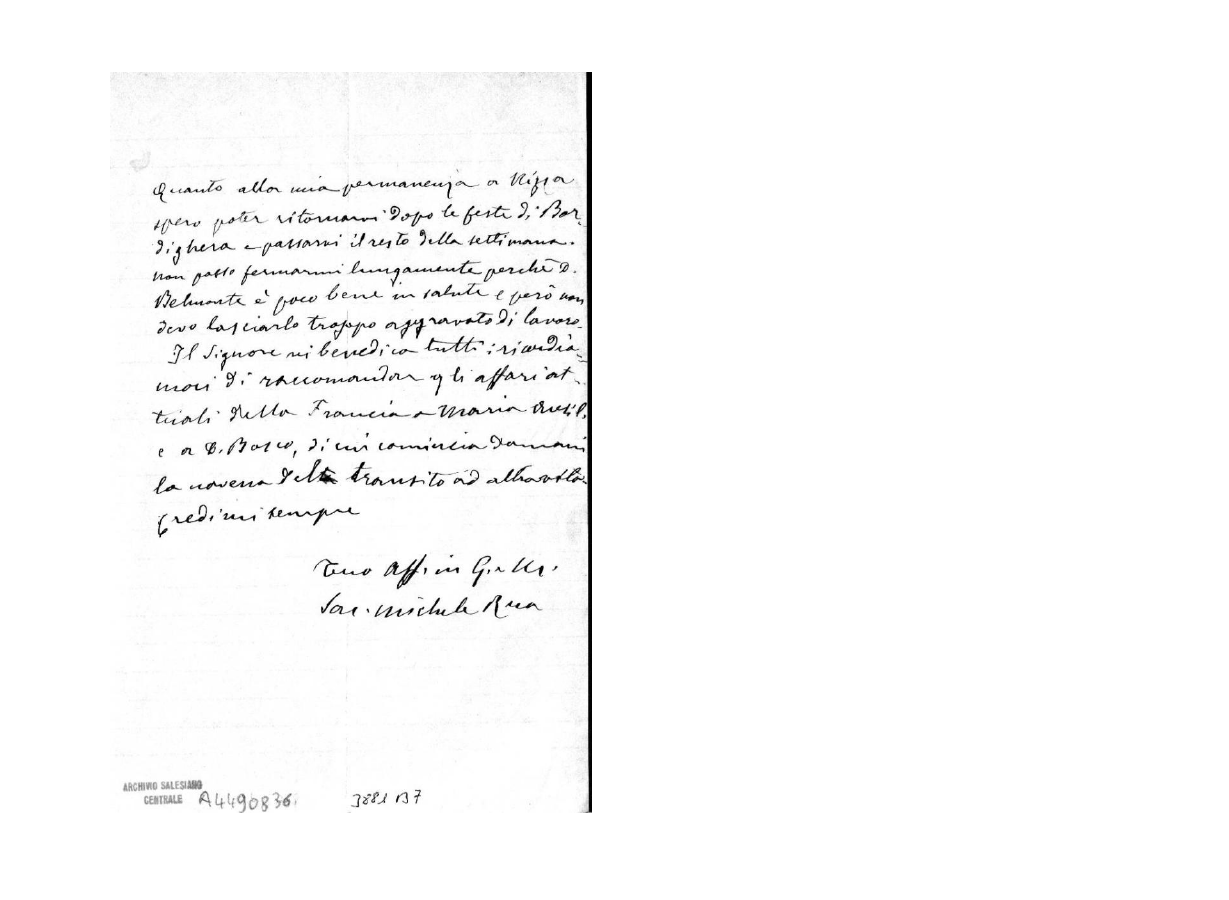 Quanto alla mia permanenza a Nizza
spero poter ritornarvi dopo le feste di Bor-
dighera e passarvi il resto della settimana.
non posso fermarmi lungamente perchè D.
Belmonte è poco bene in salute e però non
devo lasciarlo troppo aggravato di lavoro.
Il Signore vi benedica tutti: ricordia-
moci di raccomandar gli affari at-
tuali della Francia a Maria Ausil.
e a D. Bosco, di cui comincia domani
la novena del transito ad altra vita.
Credimi sempre
Tuo Aff. in G. e M.
Sac. Michele Rua
ARCHIVIO SALESIANO
CENTRALE
A4490836
3881 B7